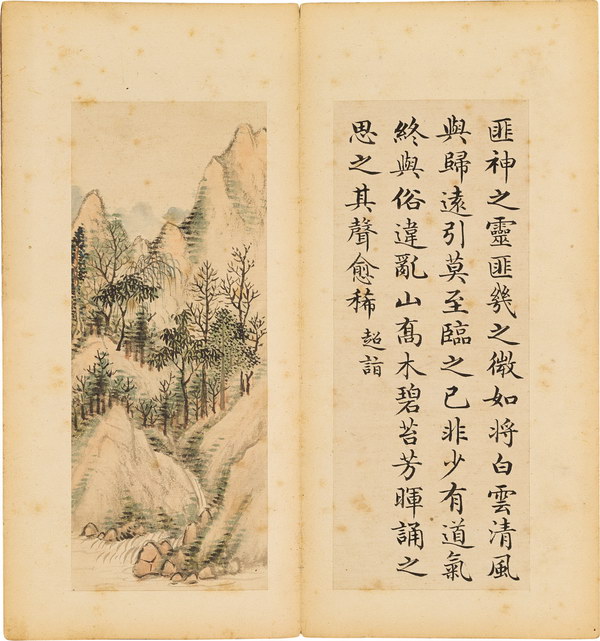 匪神之靈匪幾之微如将白雲清風
與歸遠引莫至臨之已非少有道氣
終與俗違亂山喬木碧苔芳暉誦之
思之其聲愈稀
超詣